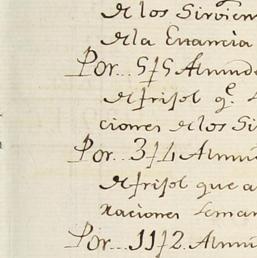 de los Sirvien
de la Estancia
Por... 575 Almude
de frisol q.e
ciones de los Si
Por... 374 Almu
de frisol que a
raciones seman
Por... 1172. Almu